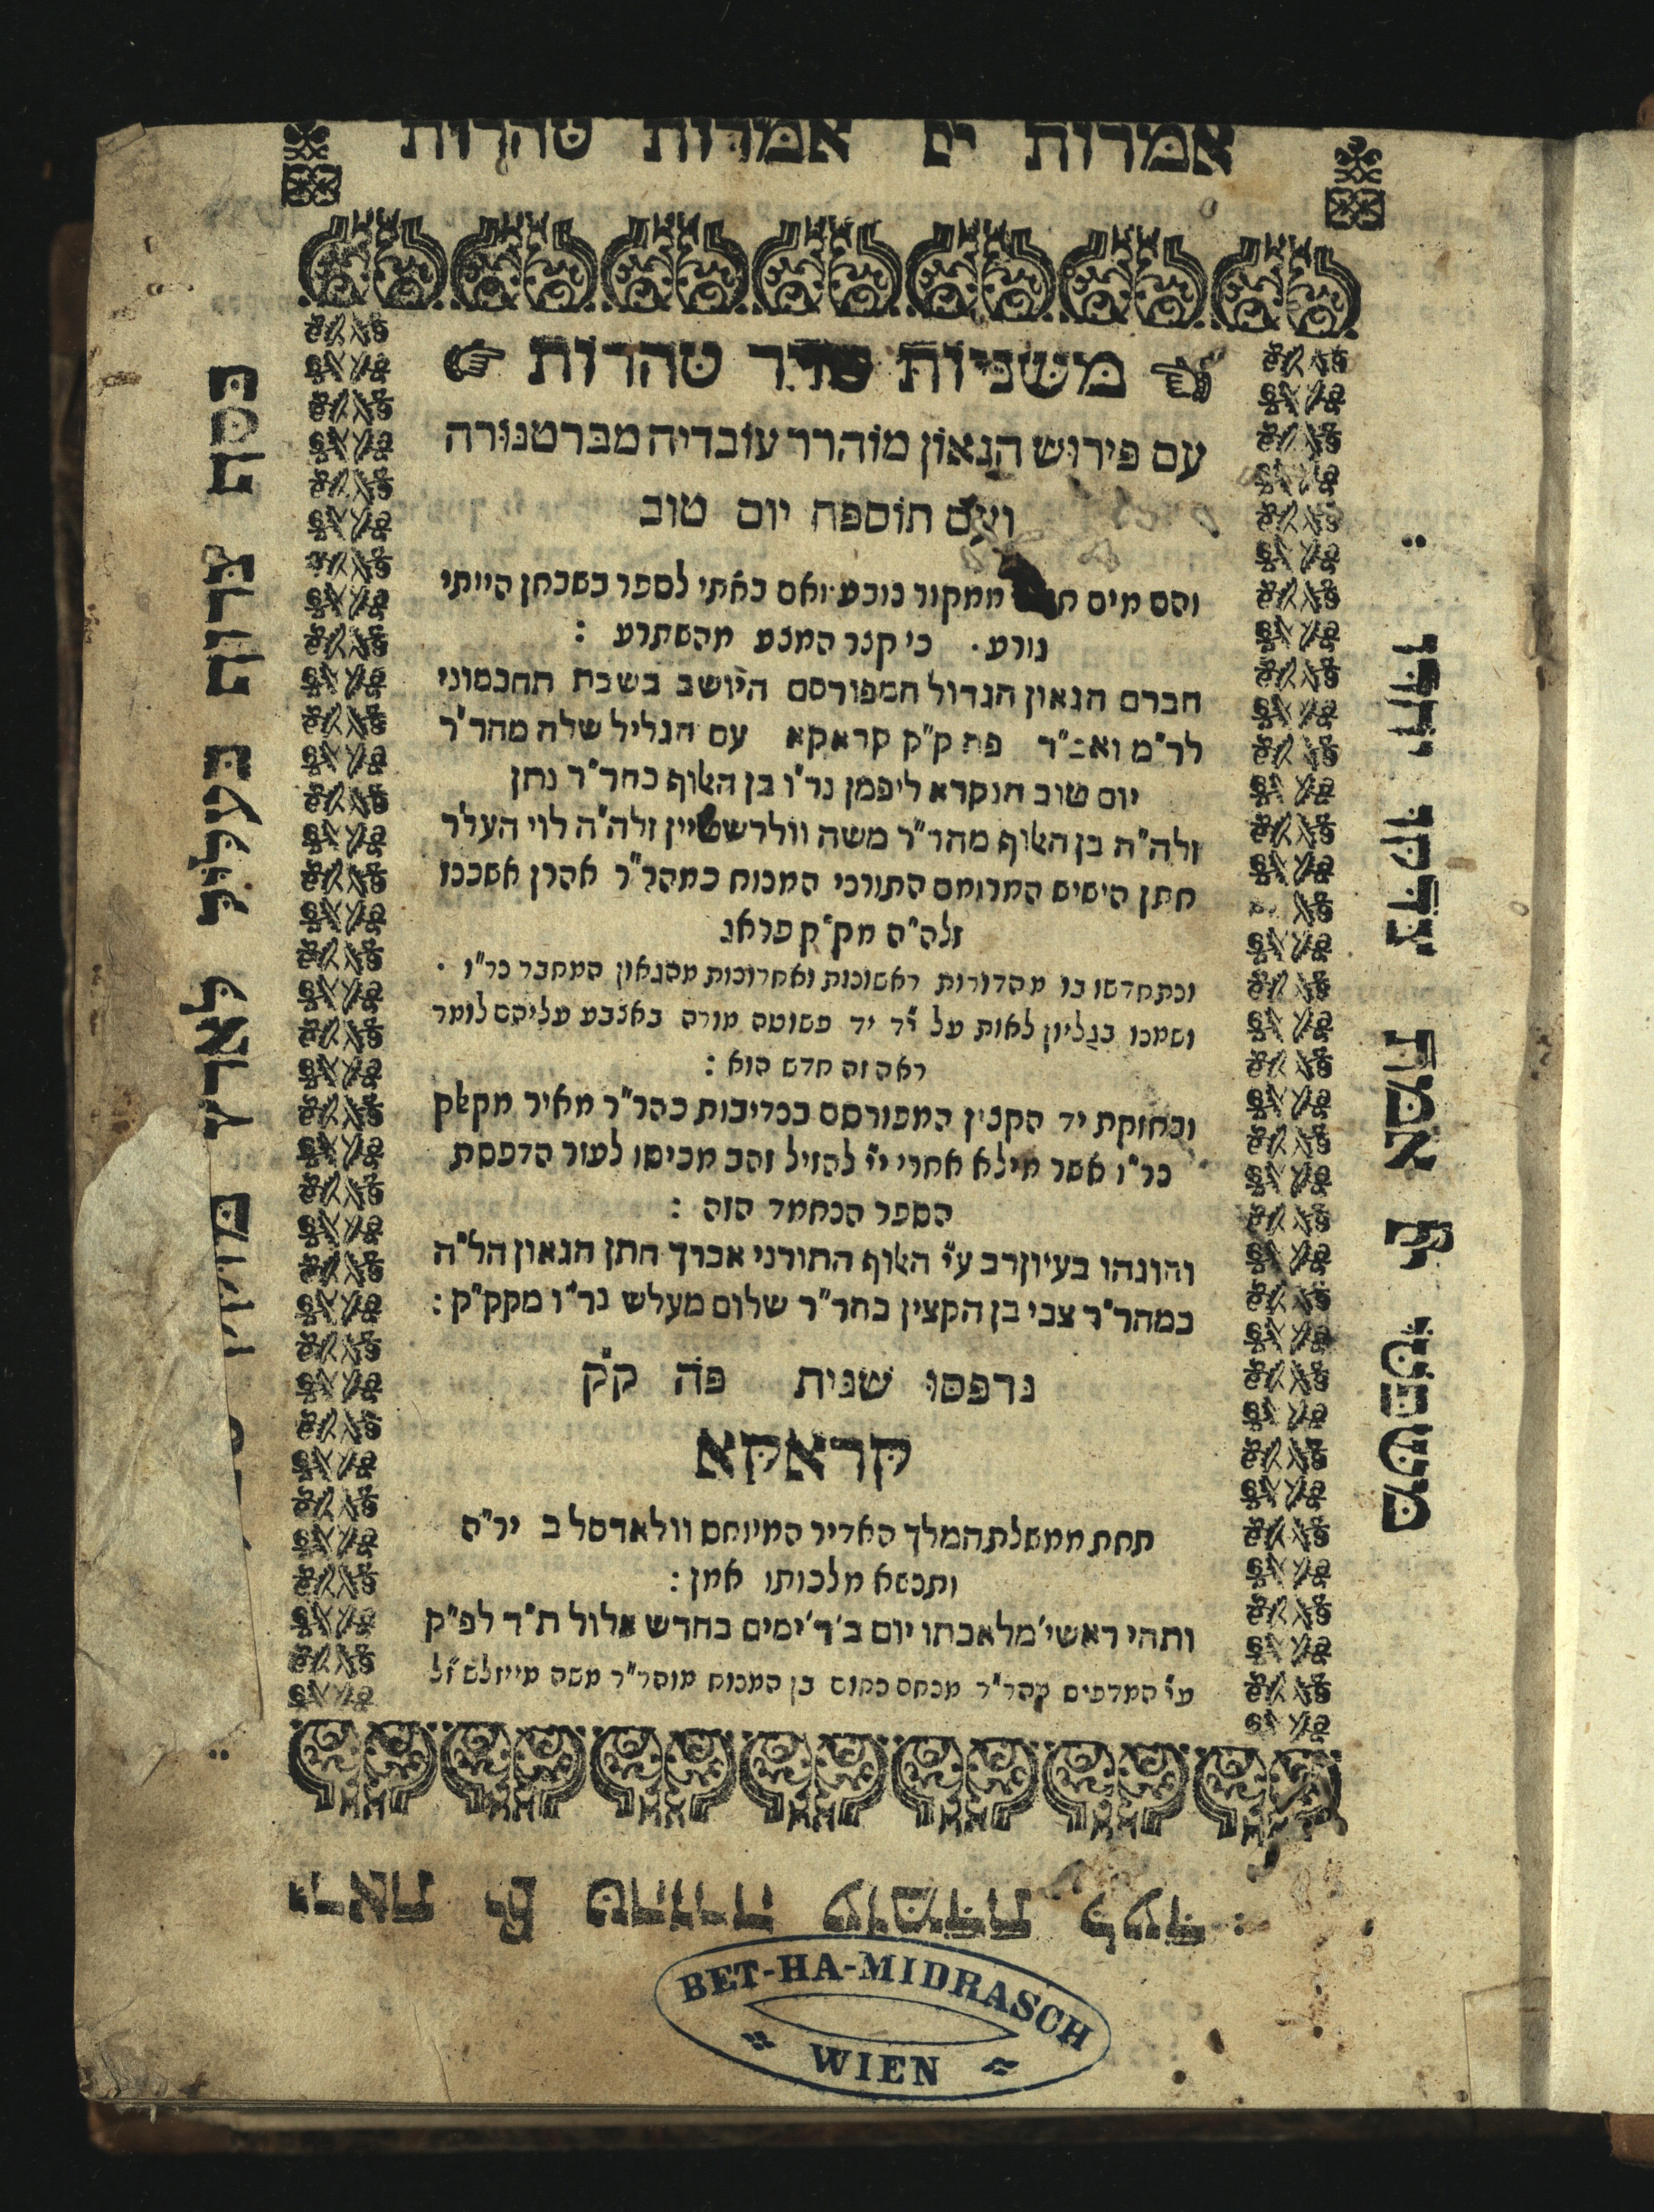 אמרות יי אמרות טהרות
משניות סדר טהרות
עם פירוש הגאון מוהרר עובדיה מברטנורה
ועם תוספת יום טוב
והם מים ממקור נובע ואם באתי לספר בשבחן הייתי
גורע. כי קצר המצע מהשתרע :
חברם הגאון הגדול המפורסם היושב בשבת תחכמוני
לר"מ ואב"ד פה ק"ק קראקא עם הגליל שלה מהר"ר
יום טוב הנקרא ליפמן נר"ו בן האלוף כהר"ר נתן
זלה"ה בן האלוף מהר"ר משה וולרשטיין זלה"ה לוי העלר
חתן הישיש המרומם התורני המנוח כמהר"ר אהרן אשכנזי
זלה"ה מק"ק פראג
ונתחדשו בו מהדורות ראשונות ואחרונות מהגאון המחבר נר"ו .
ושמנו בגליון לאות על יד יד פשוטה מורה באצבע עליהם לומר
ראה זה חדש הוא :
ובחזקת יד הקצין המפורסם בנדיבות כהר"ר מאיר מקאק
נר"ו אשר מילא אחרי יי' להזיל זהב מכיסו לעזר הדפסת
הספר הנחמד הזה :
והוגהו בעיון רב ע"י האלוף התורני אברך חתן הגאון הל"ה
כמהר"ר צבי בן הקצין כהר"ר שלום מעלש נר"ו מקק"ק :
נדפסו שנית פה קק
קראקא
תחת ממשלת המלך האדיר המיוחס וולאדסל ב יר"ה
ותנשא מלכותו אמן :
ותהי ראשי' מלאכתו יום ב' ד' ימים בחדש אלול ת"ד לפ"ק
ע"י המדפיס מהר"ר מנחם נחום בן המנוח מוהר"ר משה מייזלש ז"ל
משפטי יי אמת צדקו יחדו
יראת יי טהורה עומדת לעד :
כסף צרוף בעליל לארץ
BET-HA-MIDRASCH
WIEN